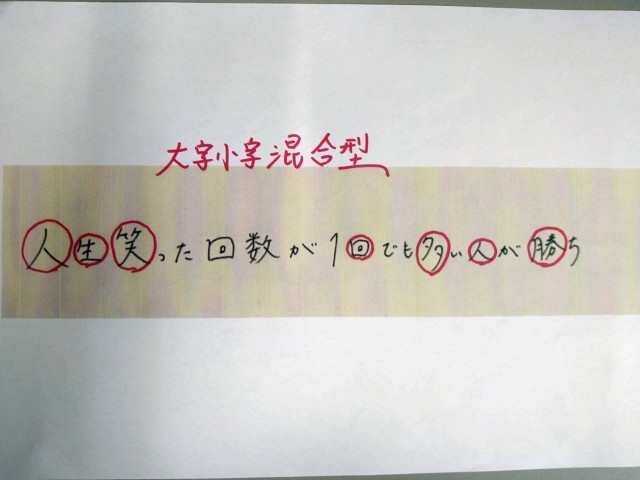 大字小字混合型
人生笑った回数が1回でも多い人が勝ち